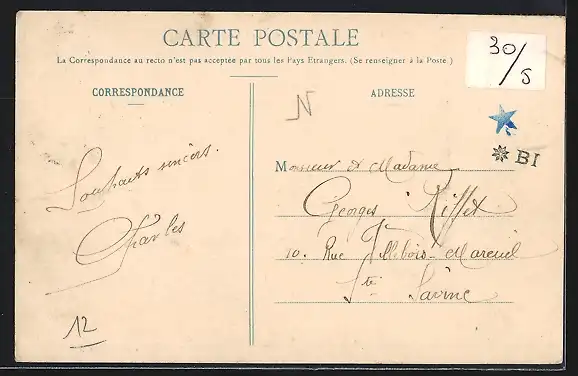 CARTE POSTALE
La Correspondance au recto n'est pas acceptée par tous les Pays Etrangers. (Se renseigner à la Poste.)
30/5
CORRESPONDANCE
ADRESSE
N
BI
Souhaits sincères.
Charles
12
Monsieur et Madame
Georges Riffet
10. Rue Villebois-Mareuil
Ste Savine